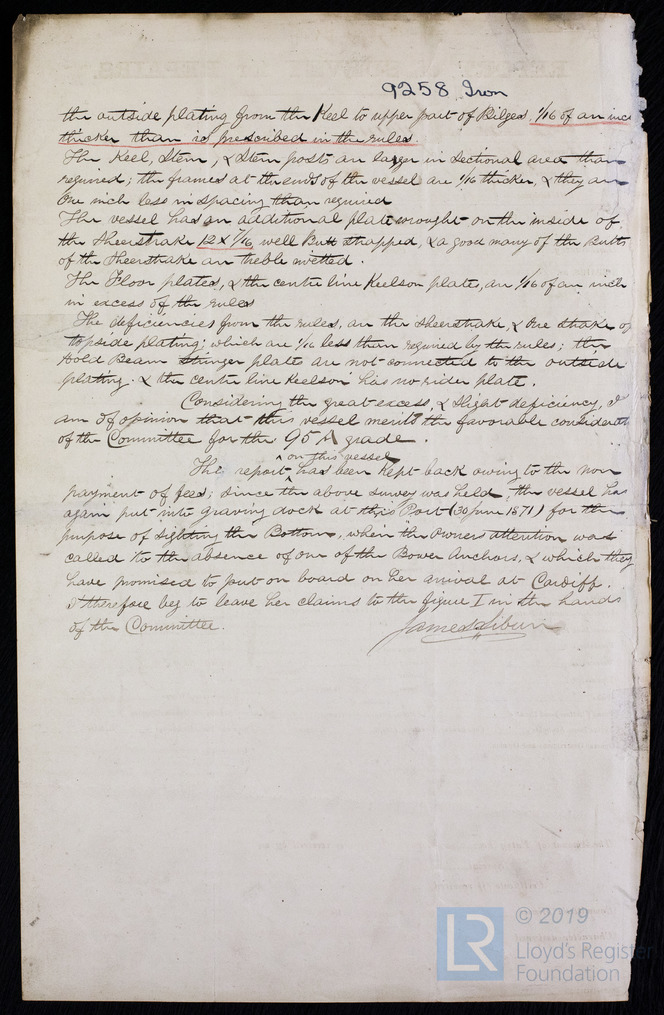 9258 Iron
the outside plating from the Keel to upper part of Bilges, 1/16 of an inc
thicker than is prescribed in the rules.
The Keel, Stem, & Stern post are larger in sectional area than
required; the frames at the ends of the vessel are 1/16 thicker, & they are
One inch less in spacing than required
The vessel has an additional plate wrought on the inside of
the Sheerstrake 12 x 7/16, well Butt strapped, & a good many of the Butts
of the Sheerstrake are treble rivetted.
The Floor plates, & the centre line Keelson plates, are 1/16 of an inch
in excess of the rules
The deficiencies from the rules, are the sheerstrake, & one strake of
topside plating; which are 1/16 less than required by the rules; the
Hold Beam Stringer plates are not connected to the outside
plating. & the centre line Keelson has no rider plate.
Considering the great excess, & slight deficiency, I
am of opinion that this vessel merits the favorable considerat
of the Committee for the 95 A grade.
The report on this vessel has been kept back owing to the non
payment of fees; since the above survey was held, the vessel has
again put into graving dock at this Port (30 June 1871) for the
purpose of sighting the Bottom, when the owners attention was
called to the absence of one of the Bower Anchors, & which they
have promised to put on board on her arrival at Cardiff.
I therefore beg to leave her claims to the figure 1 in the hands
of the Committee.
James Sibun
LR © 2019
Lloyd's Register
Foundation